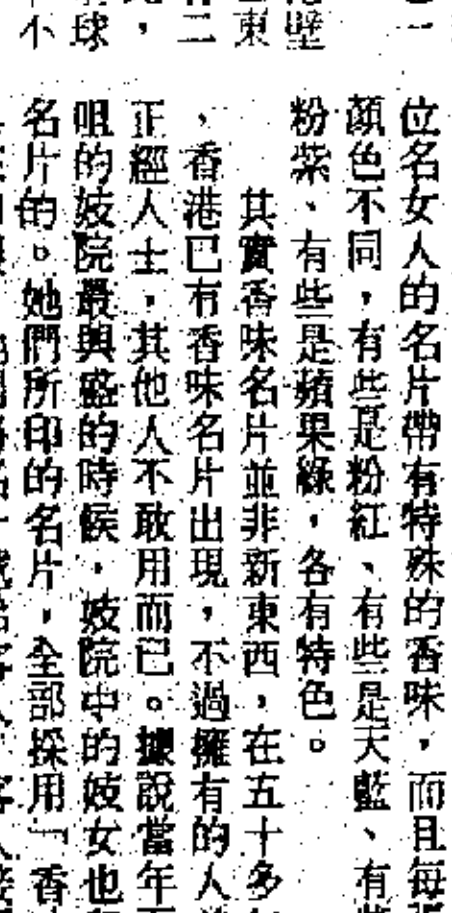 一
壁
東
二
，
球
不
位名女人的名片帶有特殊的香味，而且每張
顏色不同，有些是粉紅、有些是天藍、有些
粉紫、有些是蘋果綠，各有特色。
其實香味名片並非新東西，在五十多
、香港已有香味名片出現，不過擁有的人
正經人士，其他人不敢用而已。據說當年
咀的妓院最興盛的時候，妓院中的妓女也
名片的。她們所印的名片，全部採用「香